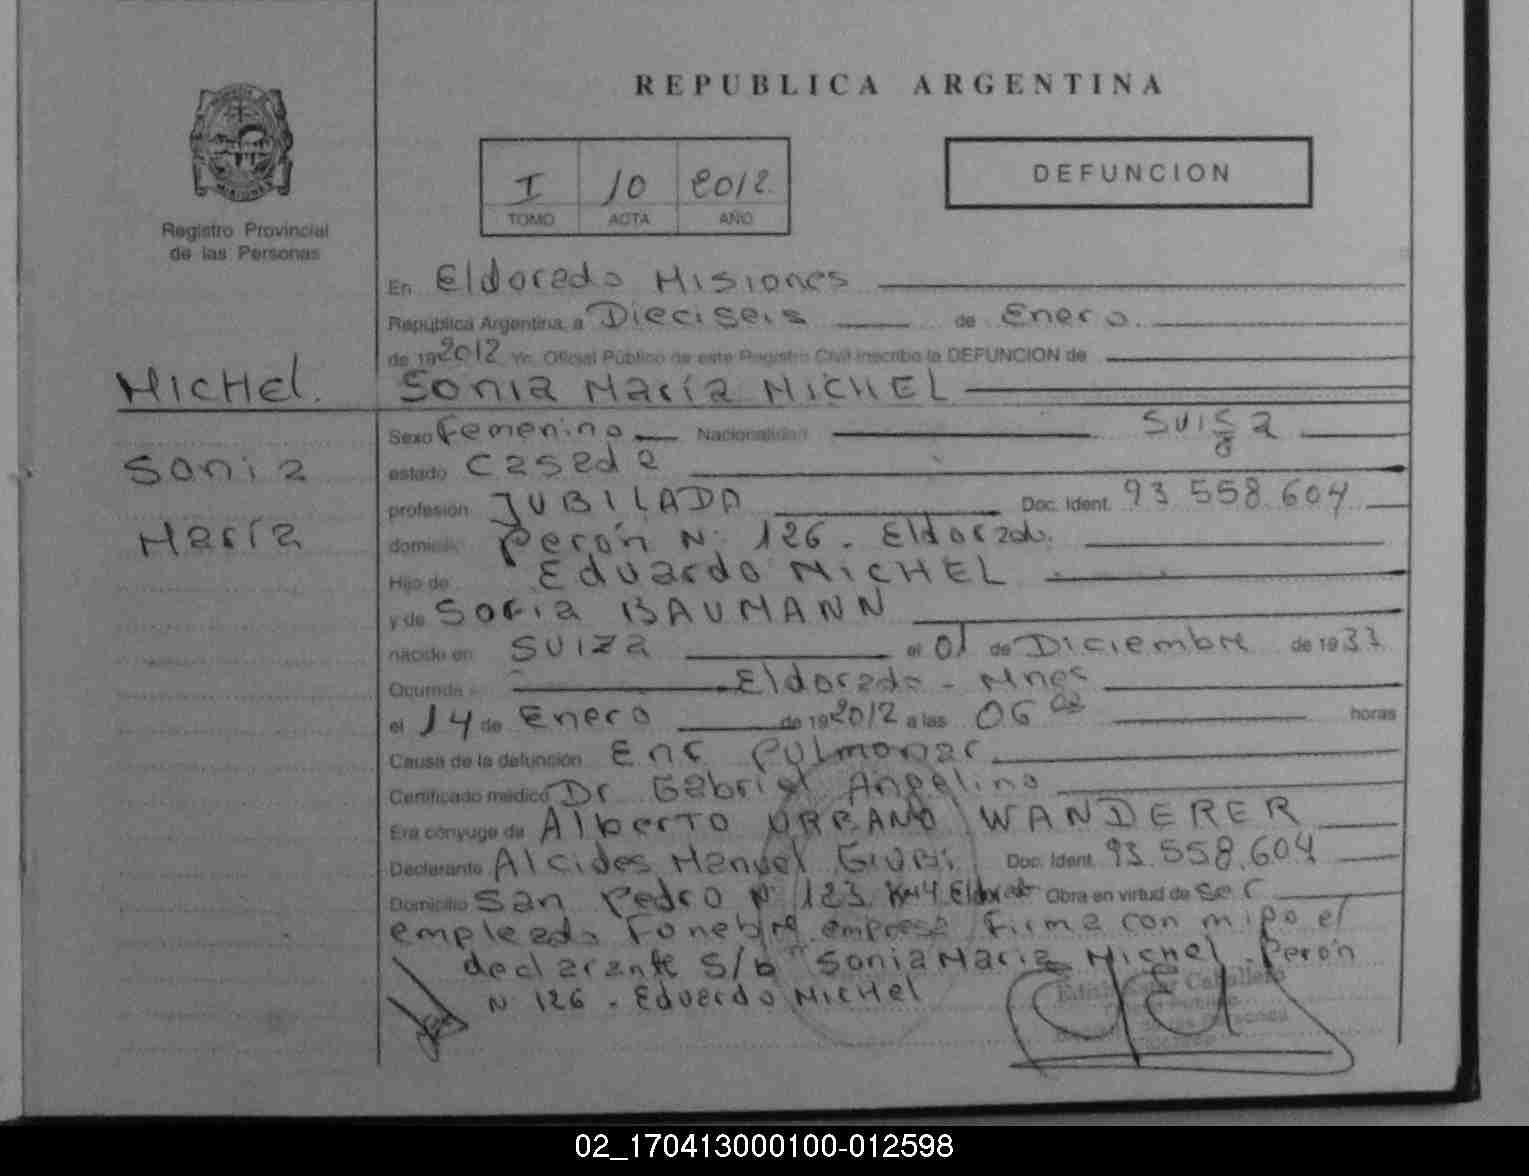 REPUBLICA ARGENTINA
I 10 2012
TOMO ACTA AÑO
DEFUNCION
Registro Provincial
de las Personas
En Eldorado Misiones
República Argentina, a Dieciseis de Enero
de 19 2012 Yo, Oficial Público de este Registro Civil inscribo la DEFUNCION de
Michel. Sonia María MICHEL
Sexo Femenino Nacionalidad Suiza
Sonia estado Casada
profesión JUBILADA Doc. Ident. 93 558.604
María domicilio Perón N. 126. Eldorado.
Hijo de Eduardo MICHEL
y de Sofia BAUMANN
nacido en SUIZA el 01 de Diciembre de 1933
Ocurrida Eldorado - Mnes
el 14 de Enero de 19 2012 a las 06 horas
Causa de la defunción Enf Pulmonar
Certificado médico Dr Gabriel Angelino
Era cónyuge de Alberto URBANO WANDERER
Declarante Alcides Manuel Doc. Ident. 93.558.604
Domicilio San Pedro N 123 Km 4 Eldorado Obra en virtud de ser
empleado Funebre empresa Firma con migo el
declarante S/b "Sonia Maria Michel. Perón
N 126. Eduardo Michel
02_170413000100-012598